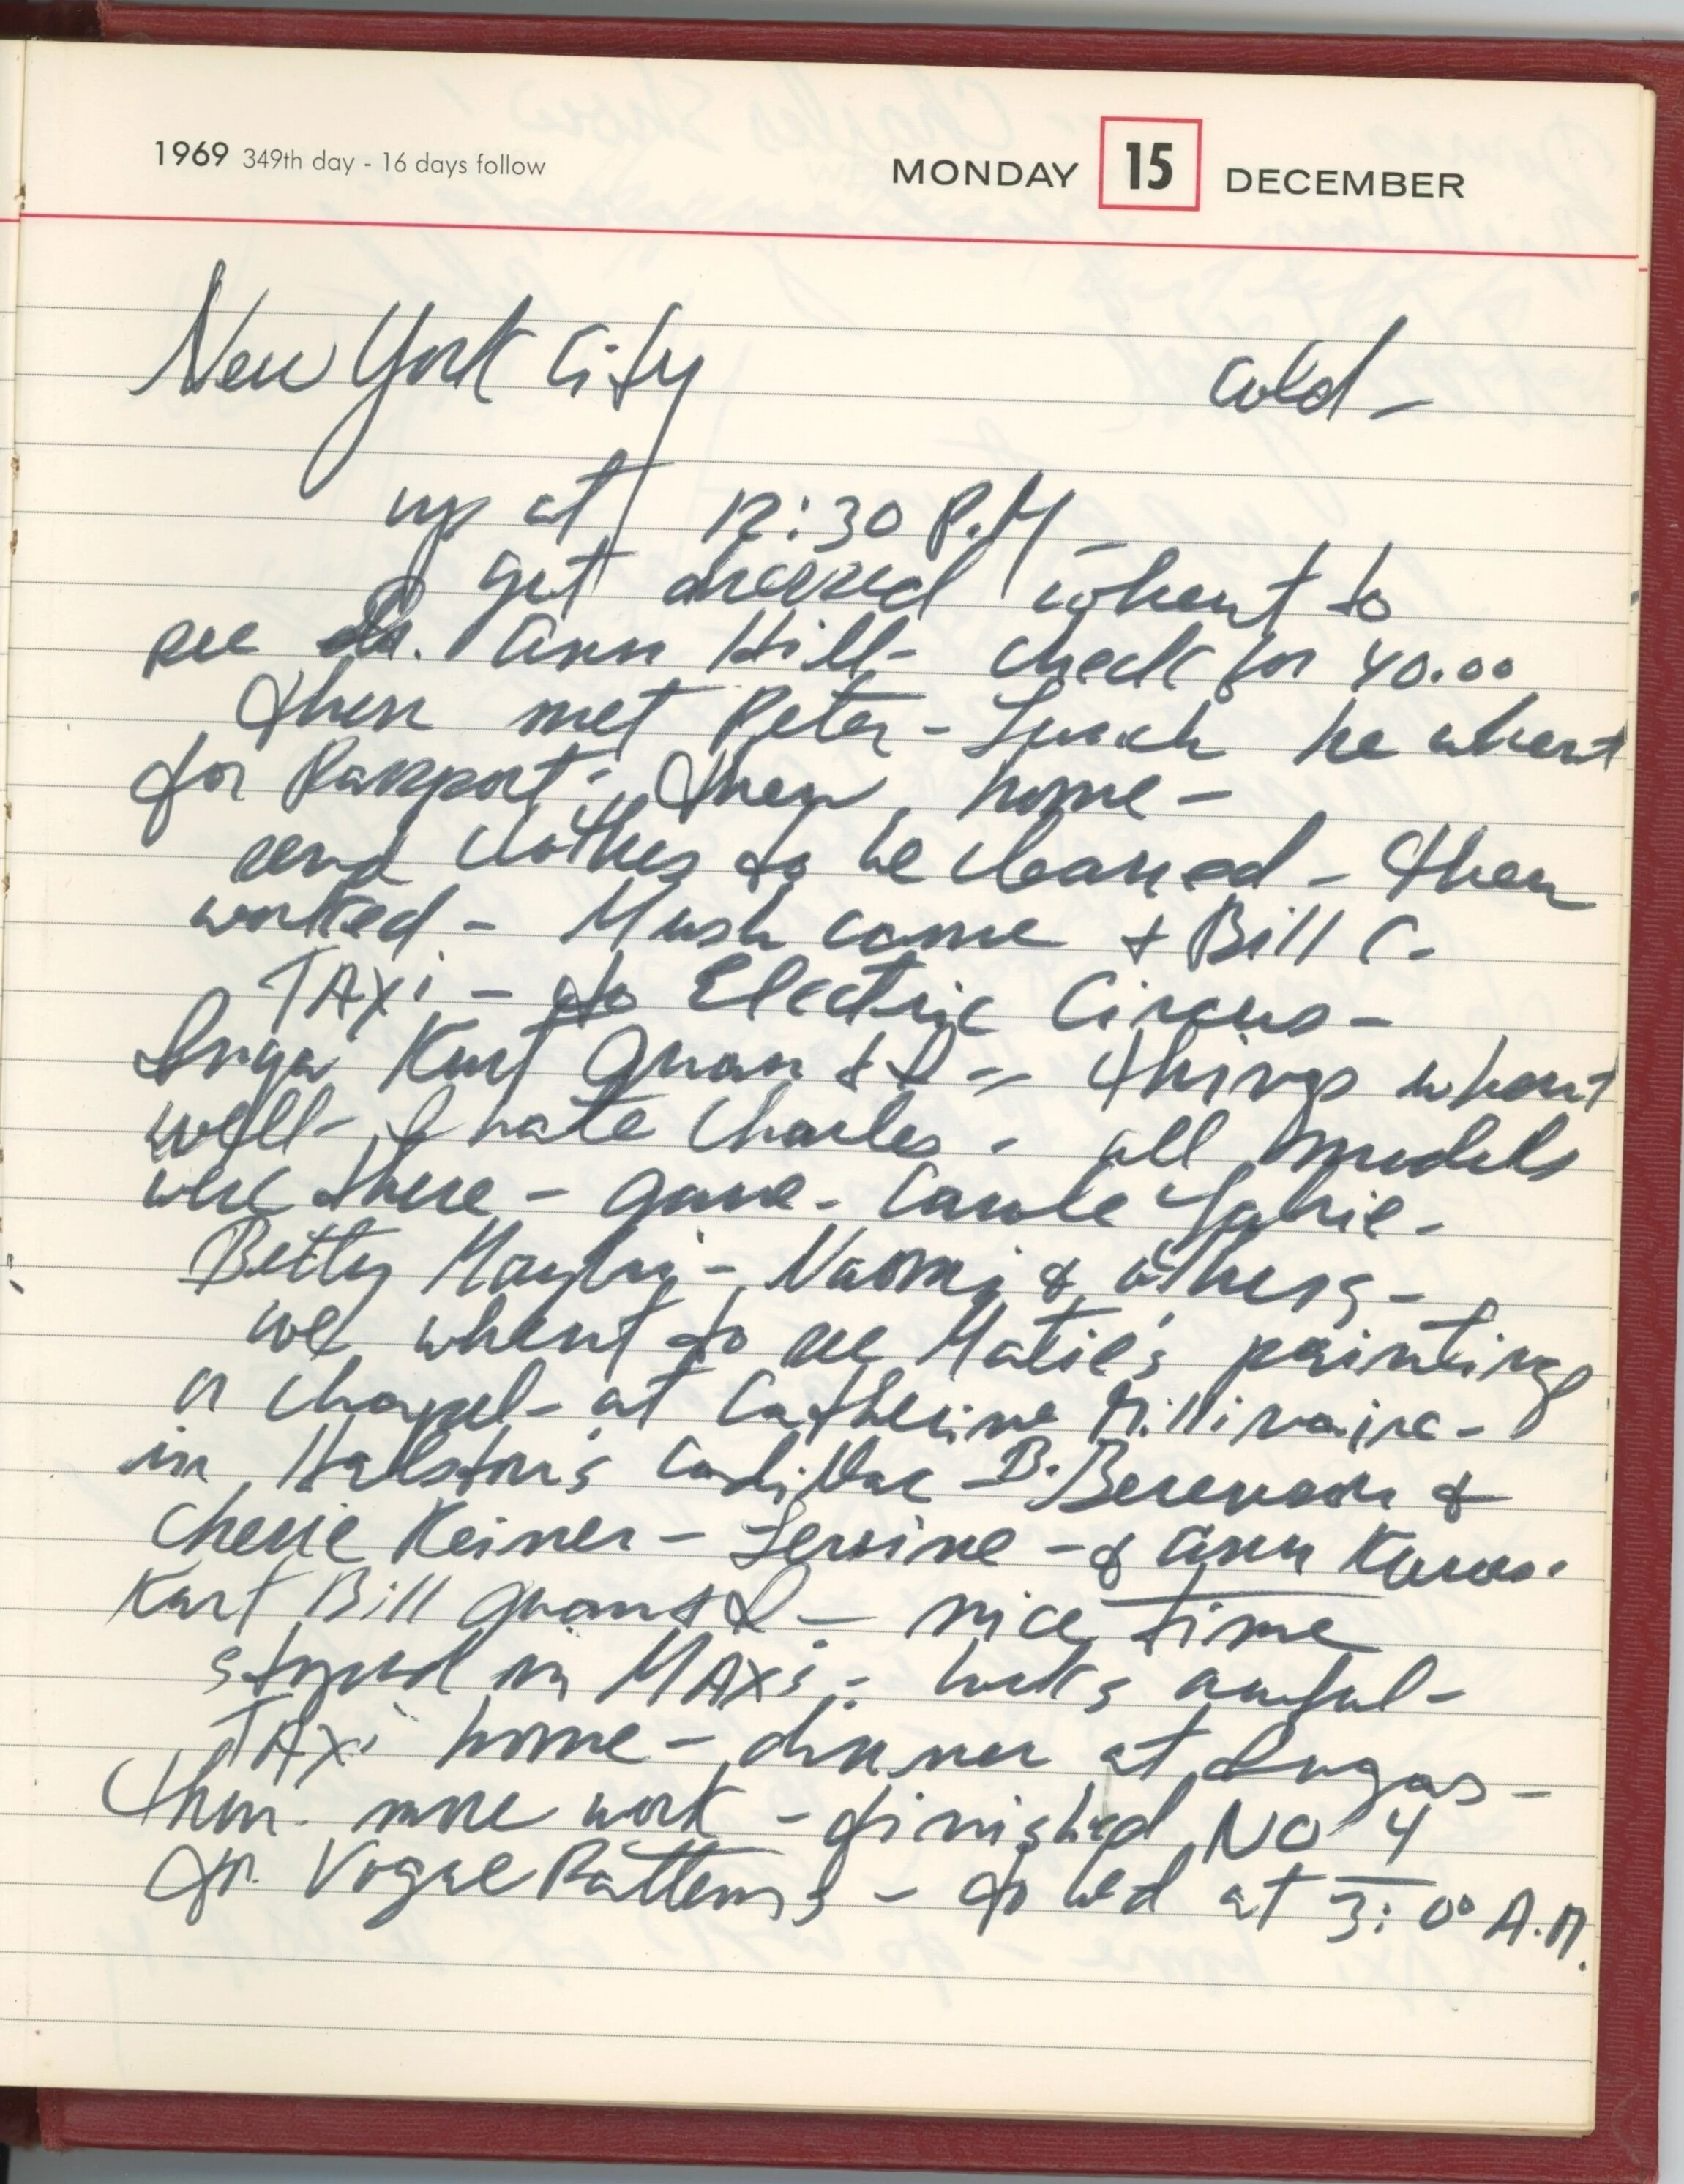 1969 349th day - 16 days follow
MONDAY 15 DECEMBER
New York City cold -
up at 12:30 P.M -
got dressed whent to
see Dr. Ann Hill - check for 40.00
then met Peter - Lunch he whent
for Passport - then home -
send clothes to be cleaned - then
worked - Mush came + Bill C.
TAXi - to Electric Circus -
Inga Kurt Juan & I - things whent
well - I hate Charles - all models
were there - Jane - Carole
Betty - Naomi & others -
we whent to see Matie's paintings
a chapel - at Catherine Millinaire -
in Halston's Cadillac - B. Berenson &
Cherie Keiner - - & Ann
Kurt Bill Juan & I - nice time
stoped in MAXi - looks awful -
TAXi home - dinner at Ingas -
then more work - finished NO 4
for Vogue Patterns - to bed at 3:00 A.M.